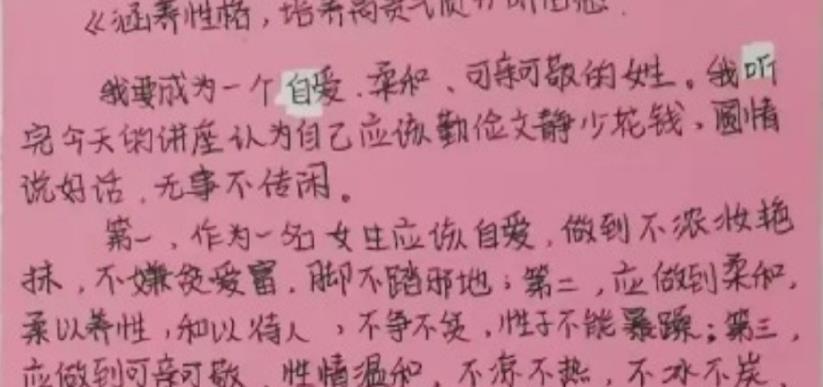 《涵养性格，培养高贵气质》听后感
我要成为一个自爱、柔和、可亲可敬的女生。我听
完今天的讲座认为自己应该勤俭文静少花钱、圆情
说好话，无事不传闲。
第一，作为一名女生应该自爱，做到不浓妆艳
抹，不嫌贫爱富，脚不踏邪地；第二，应做到柔和，
柔以养性，和以待人，不争不贪，性子不能暴躁；第三，
应做到可亲可敬，性情温和，不凉不热，不冰不炭，